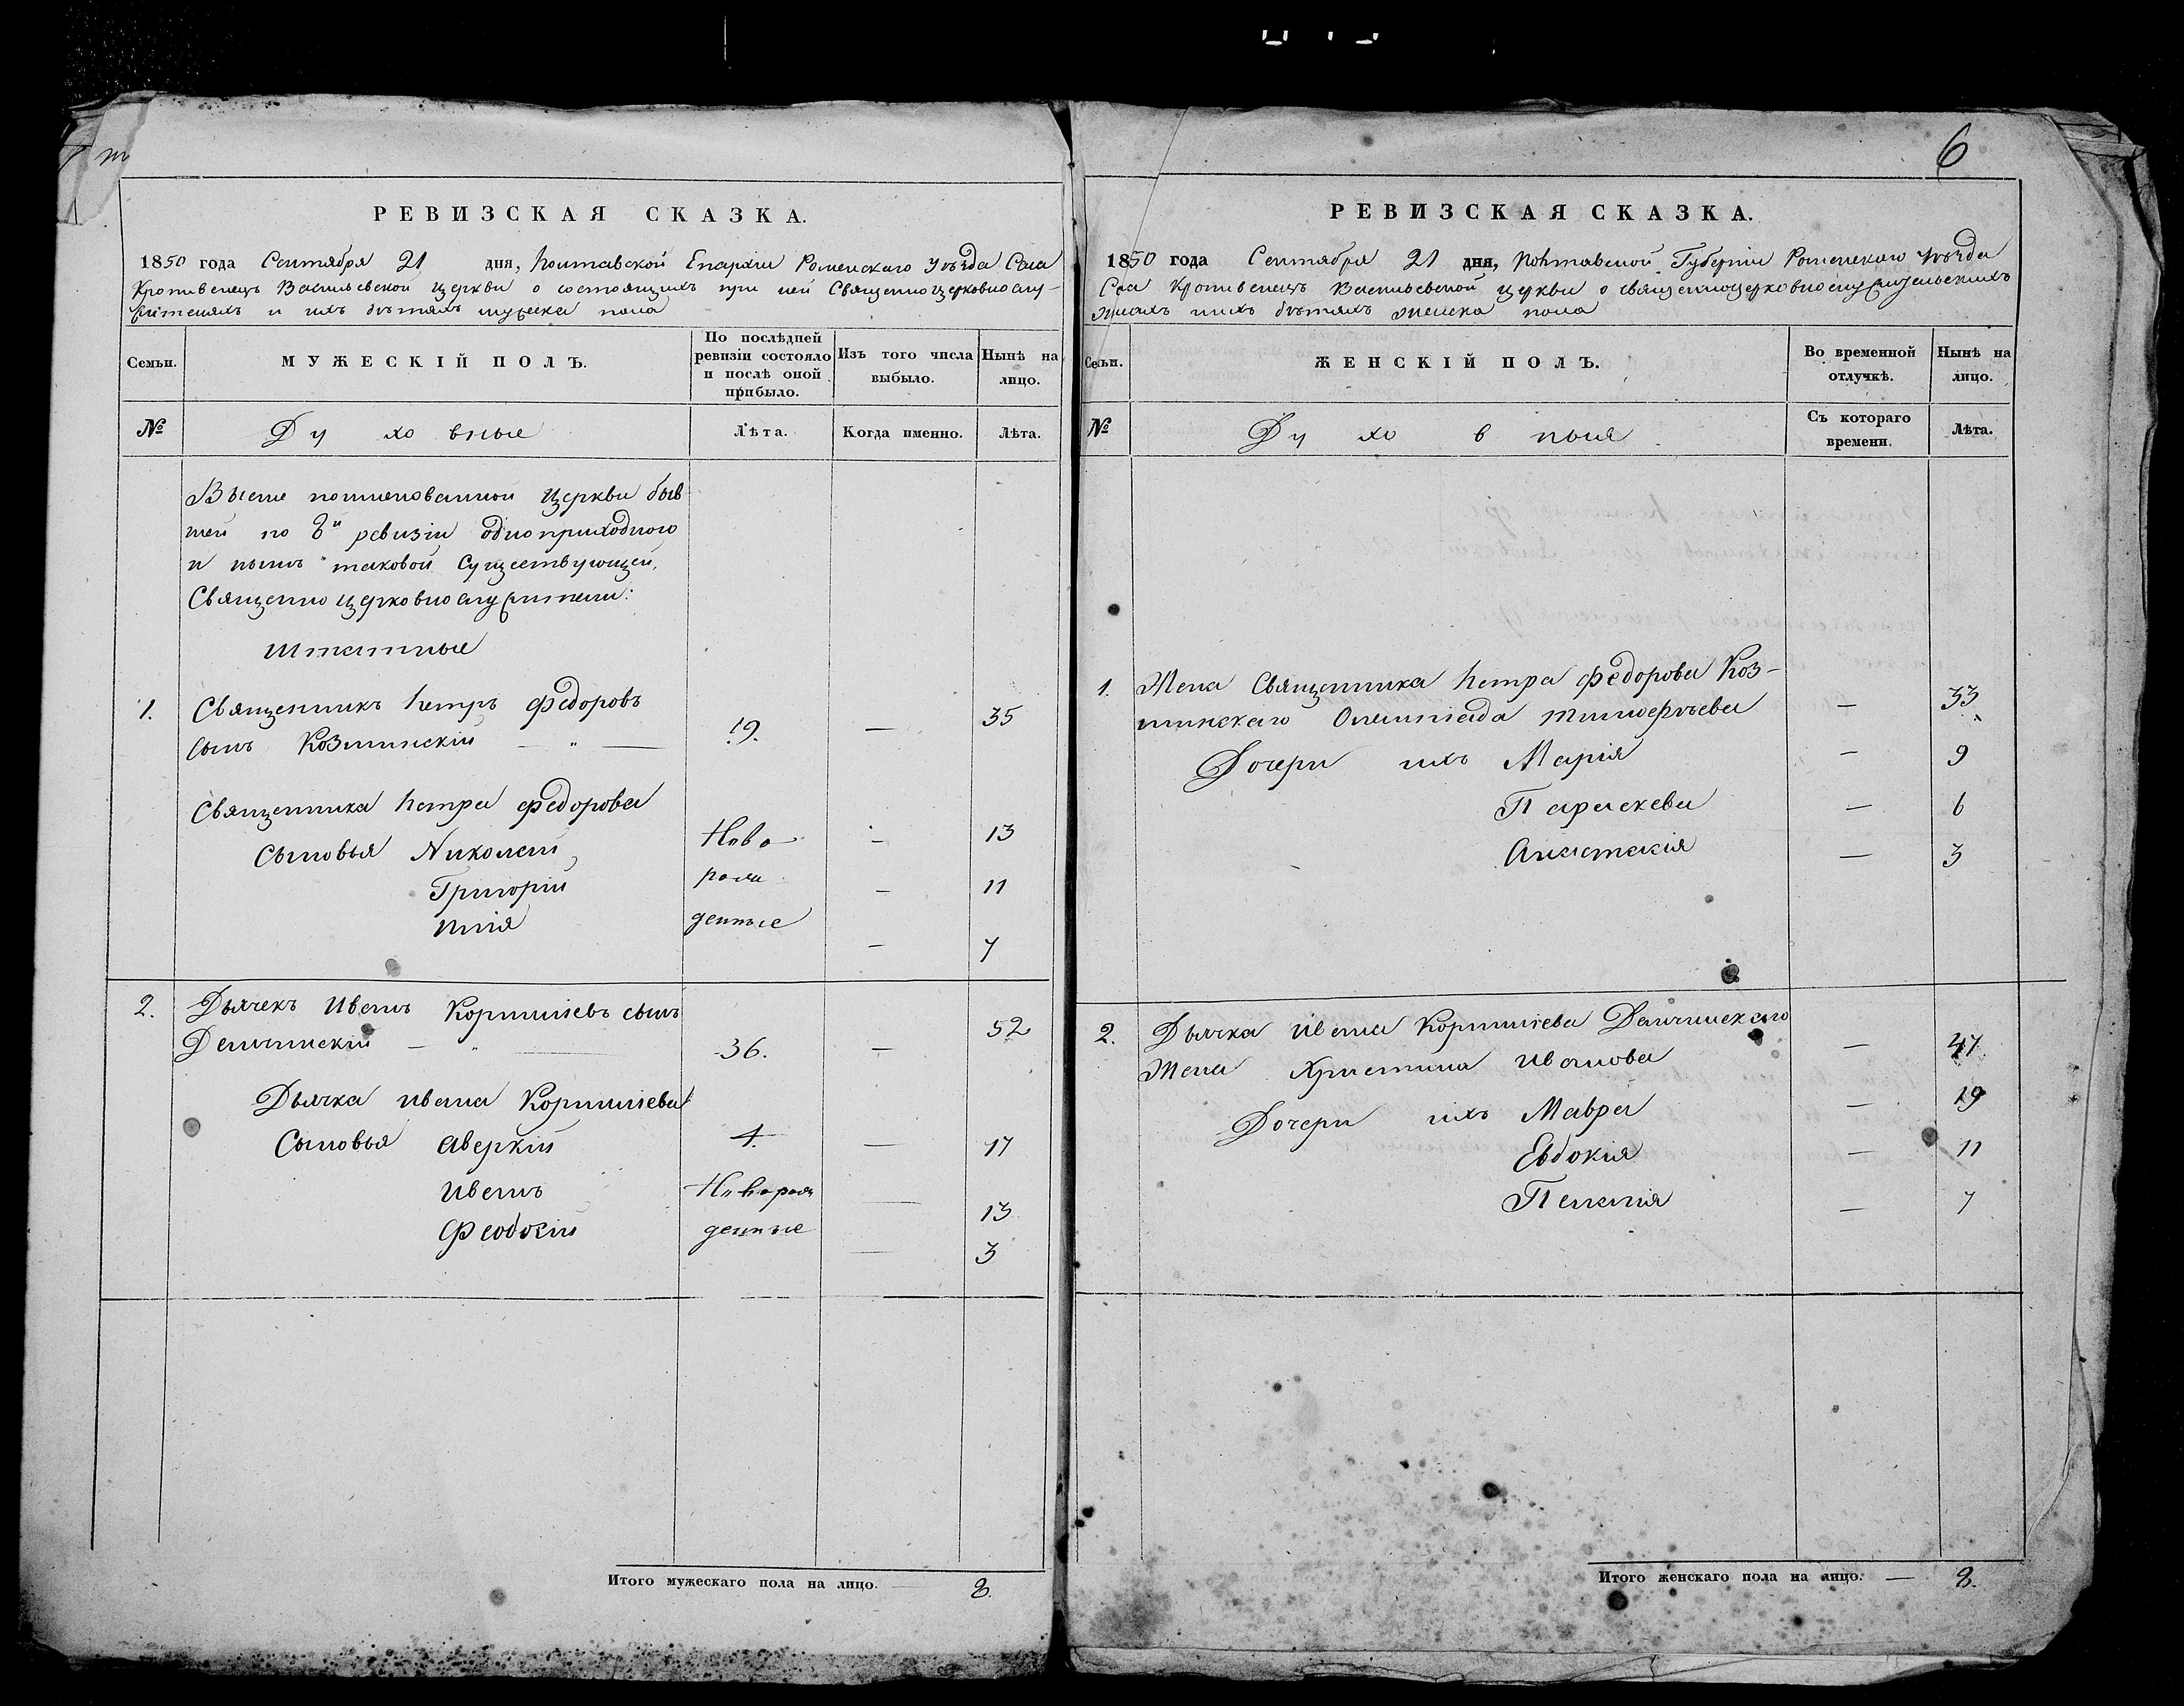 6
РЕВИЗСКАЯ СКАЗКА.
1850 года Сентября 21 дня, Полтавской Епархіи Роменскаго Уѣзда Села
Кропивенецъ Васильевской церкви о состоящихъ при ней Священноцерковнослу-
жителяхъ и ихъ дѣтяхъ мужеска пола
Семьи.
МУЖЕСКІЙ ПОЛЪ.
По послѣдней ревизіи состояло и послѣ оной прибыло.
Изъ того числа выбыло.
Нынѣ на лицо.
№
Духовные
Лѣта.
Когда именно.
Лѣта.
Выше поименованной церкви быв
шей по 8й ревизіи одноприходною
и нынѣ таковой существующей,
Священно церковнослужители:
Штатные
1. Священникъ Петръ Федоровъ
сынъ Козминскій — „ — 19. — 35
Священника Петра Федорова
Сыновья Николай Ново — 13
Григорій рож — 11
Илія денные — 7
2. Дьячекъ Иванъ Корниліевъ сынъ
Демчинскій — „ — 36. — 52
Дьячка Ивана Корниліева
Сыновья Аверкій 1. — 17
Иванъ Оноврож — 13
Феодосій денные — 3
Итого мужескаго пола на лицо. 8.
РЕВИЗСКАЯ СКАЗКА.
1850 года Сентября 21 дня, Полтавской Губерніи Роменскаго Уѣзда
Села Кропивенецъ Васильевской церкви о священноцерковнослужительскихъ
женахъ и ихъ дѣтяхъ женска пола
Семьи.
ЖЕНСКІЙ ПОЛЪ.
Во временной отлучкѣ.
Нынѣ на лицо.
№
Духовныя
Съ котораго времени.
Лѣта.
1. Жена Священника Петра Федорова Коз-
минскаго Олимпіада Тимофѣева — 33
Дочери ихъ Марія — 9
Параскева — 6
Анастасія — 3
2. Дьячка Ивана Корниліева Демчинскаго
Жена Христина Иванова — 47
Дочери ихъ Мавра — 19
Евдокія — 11
Пелагія — 7
Итого женскаго пола на лицо. — 8.